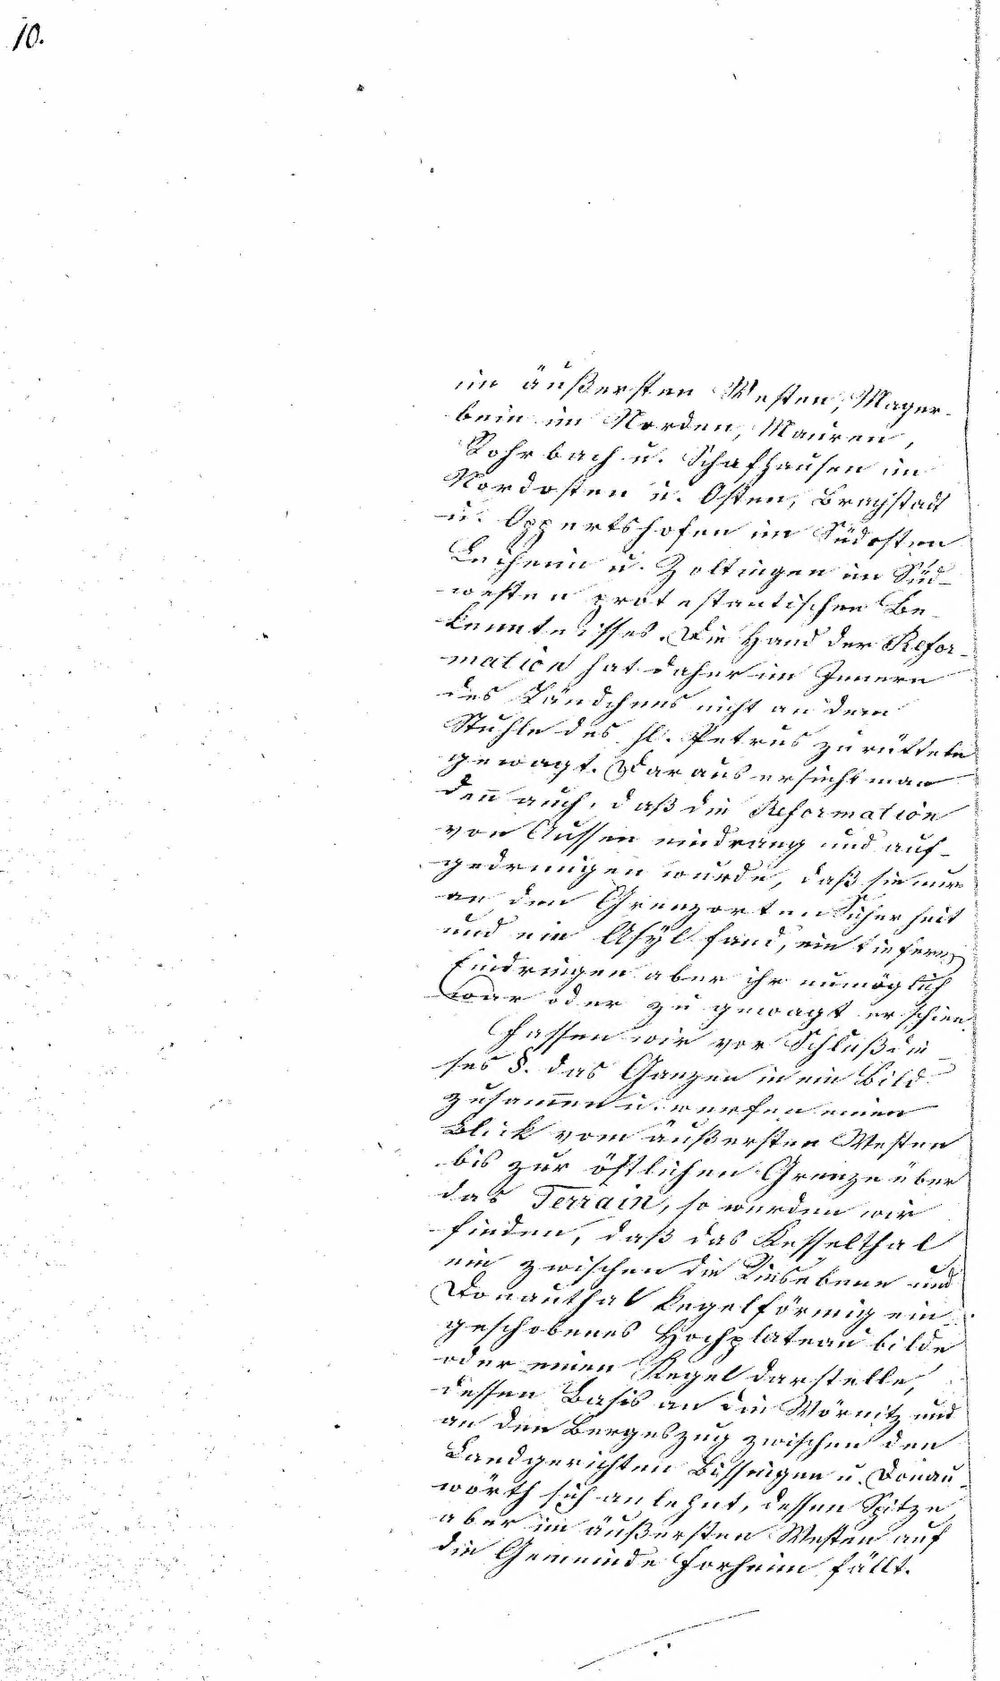 10.
im äußersten Westen, Mager-
bein im Norden, Mauren,
Rohrbach u. Schafhausen im
Nordosten u. Osten, Brachstadt
u. Oppertshofen im Südosten
Leiheim u. Zoltingen im Süd-
westen protestantischen Be-
kenntnisses. Die Hand der Refor-
mation hat daher im Innern
des Ländchens nicht an dem
Stuhle des hl. Petrus zu rütteln
gewagt. Daraus ersieht man
deñ auch, daß die Reformation
von Aussen eindrang und auf-
gedrungen wurde, daß sie nur
an den Grenzorten Sicherheit
und ein Asyl fand, ein tieferes
Eindringen aber ihr unmöglich
war oder zu gewagt erschien.
Fassen wir vor Schluß die-
ses §. das Ganze in ein Bild
zusam̄en u. werfen einen
Blick vom äußersten Westen
bis zur östlichen Grenze über
das Terrain, so werden wir
finden, daß das Kesselthal
ein zwischen die Riesebene und
Donauthal kegelförmig ein-
geschobenes Hochplateau bilde
oder einen Kegel darstelle,
dessen Basis an die Wörnitz und
an den Bergeszug zwischen den
Landgerichten Bissingen u. Donau-
wörth sich anlehnt, dessen Spitze
aber im äußersten Westen auf
die Gemeinde Forheim fällt.